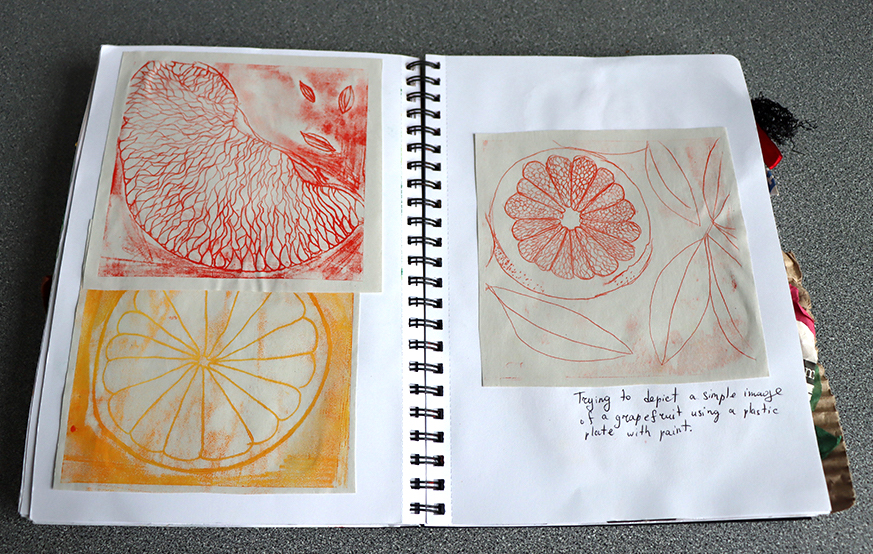 Trying to depict a simple image
of a grapefruit using a plastic
plate with paint.